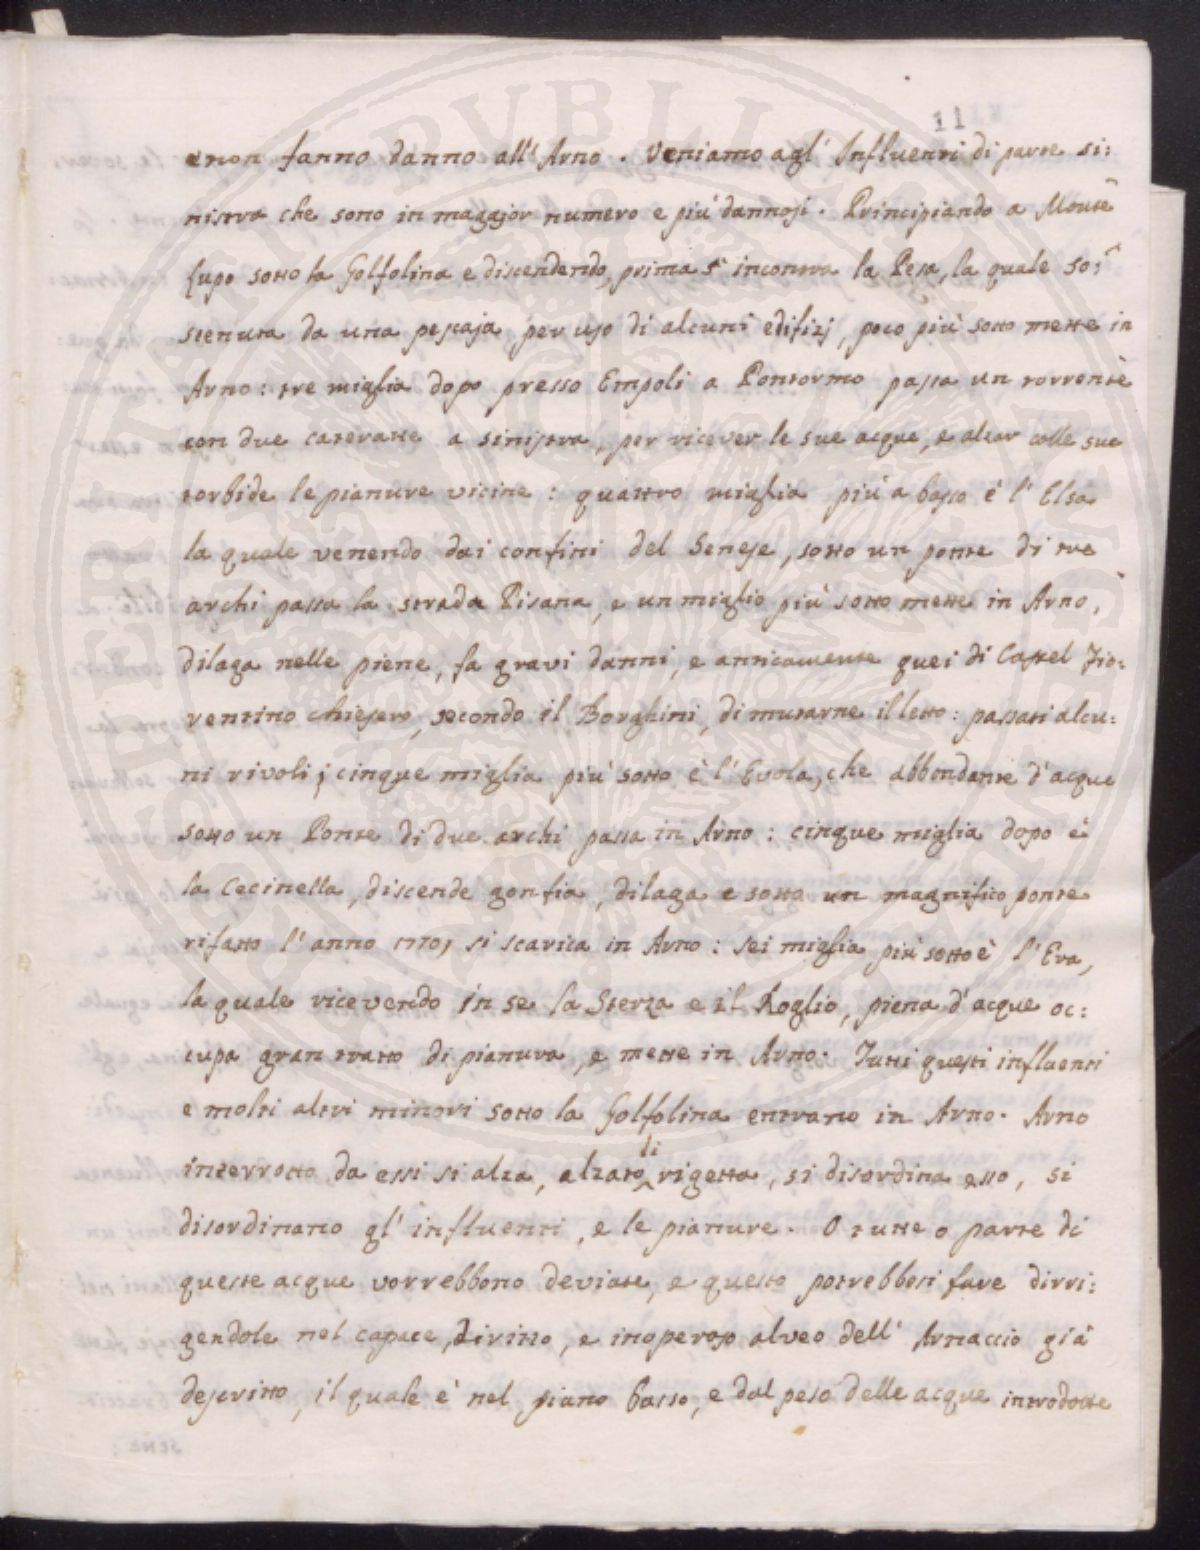 11
e non fanno danno all'Arno. Veniamo agl'Influenti di parte si:
nistra che sono in maggior numero e più dannosi. Principiando a Monte
lupo sotto la Golfolina e discendendo, prima s'incontra la Pesa, la quale so:
stenuta da una pescaja per uso di alcuni edifizj, poco più sotto mette in
Arno: tre miglia dopo presso Empoli a Pontormo passa un torrente
con due cateratte a sinistra, per ricever le sue acque, e alzar colle sue
torbide le pianure vicine: quattro miglia più a basso è l'Elsa
la quale venendo dai confini del Senese, sotto un ponte di tre
archi passa la strada Pisana, e un miglio più sotto mette in Arno,
dilaga nelle piene, fa gravi danni, e anticamente quei di Castel Fio:
rentino chiesero, secondo il Borghini, di mutarne il letto: passati alcu:
ni rivoli; cinque miglia più sotto è l'Evola, che abbondante d'acque
sotto un Ponte di due archi passa in Arno: cinque miglia dopo è
la Cecinella, discende gonfia, dilaga e sotto un magnifico ponte
rifatto l'anno 1770, si scarica in Arno: sei miglia più sotto è l'Era,
la quale ricevendo in se la Sterza e il Roglio, piena d'acque oc:
cupa gran tratto di pianura, e mette in Arno. Tutti questi influenti
e molti altri minori sotto la Golfolina entrano in Arno. Arno
interrotto da essi si alza, alzato li rigetta, si disordina esso, si
disordinano gl'influenti, e le pianure. O tutte o parte di
queste acque vorrebbono deviate, e questo potrebbesi fare dirri:
gendole nel capace, diritto, e inoperoso alveo dell'Arnaccio già
descritto, il quale è nel piano basso, e dal peso delle acque introdotte